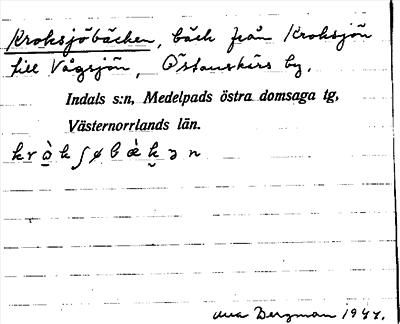 Kroksjöbäcken, bäck från Kroksjön
till Vågsjön, Östanskärs by.
Indals s:n, Medelpads östra domsaga tg,
Västernorrlands län.
krò̱kʃøbæ̀k̬ɔn
Bergman 1944.